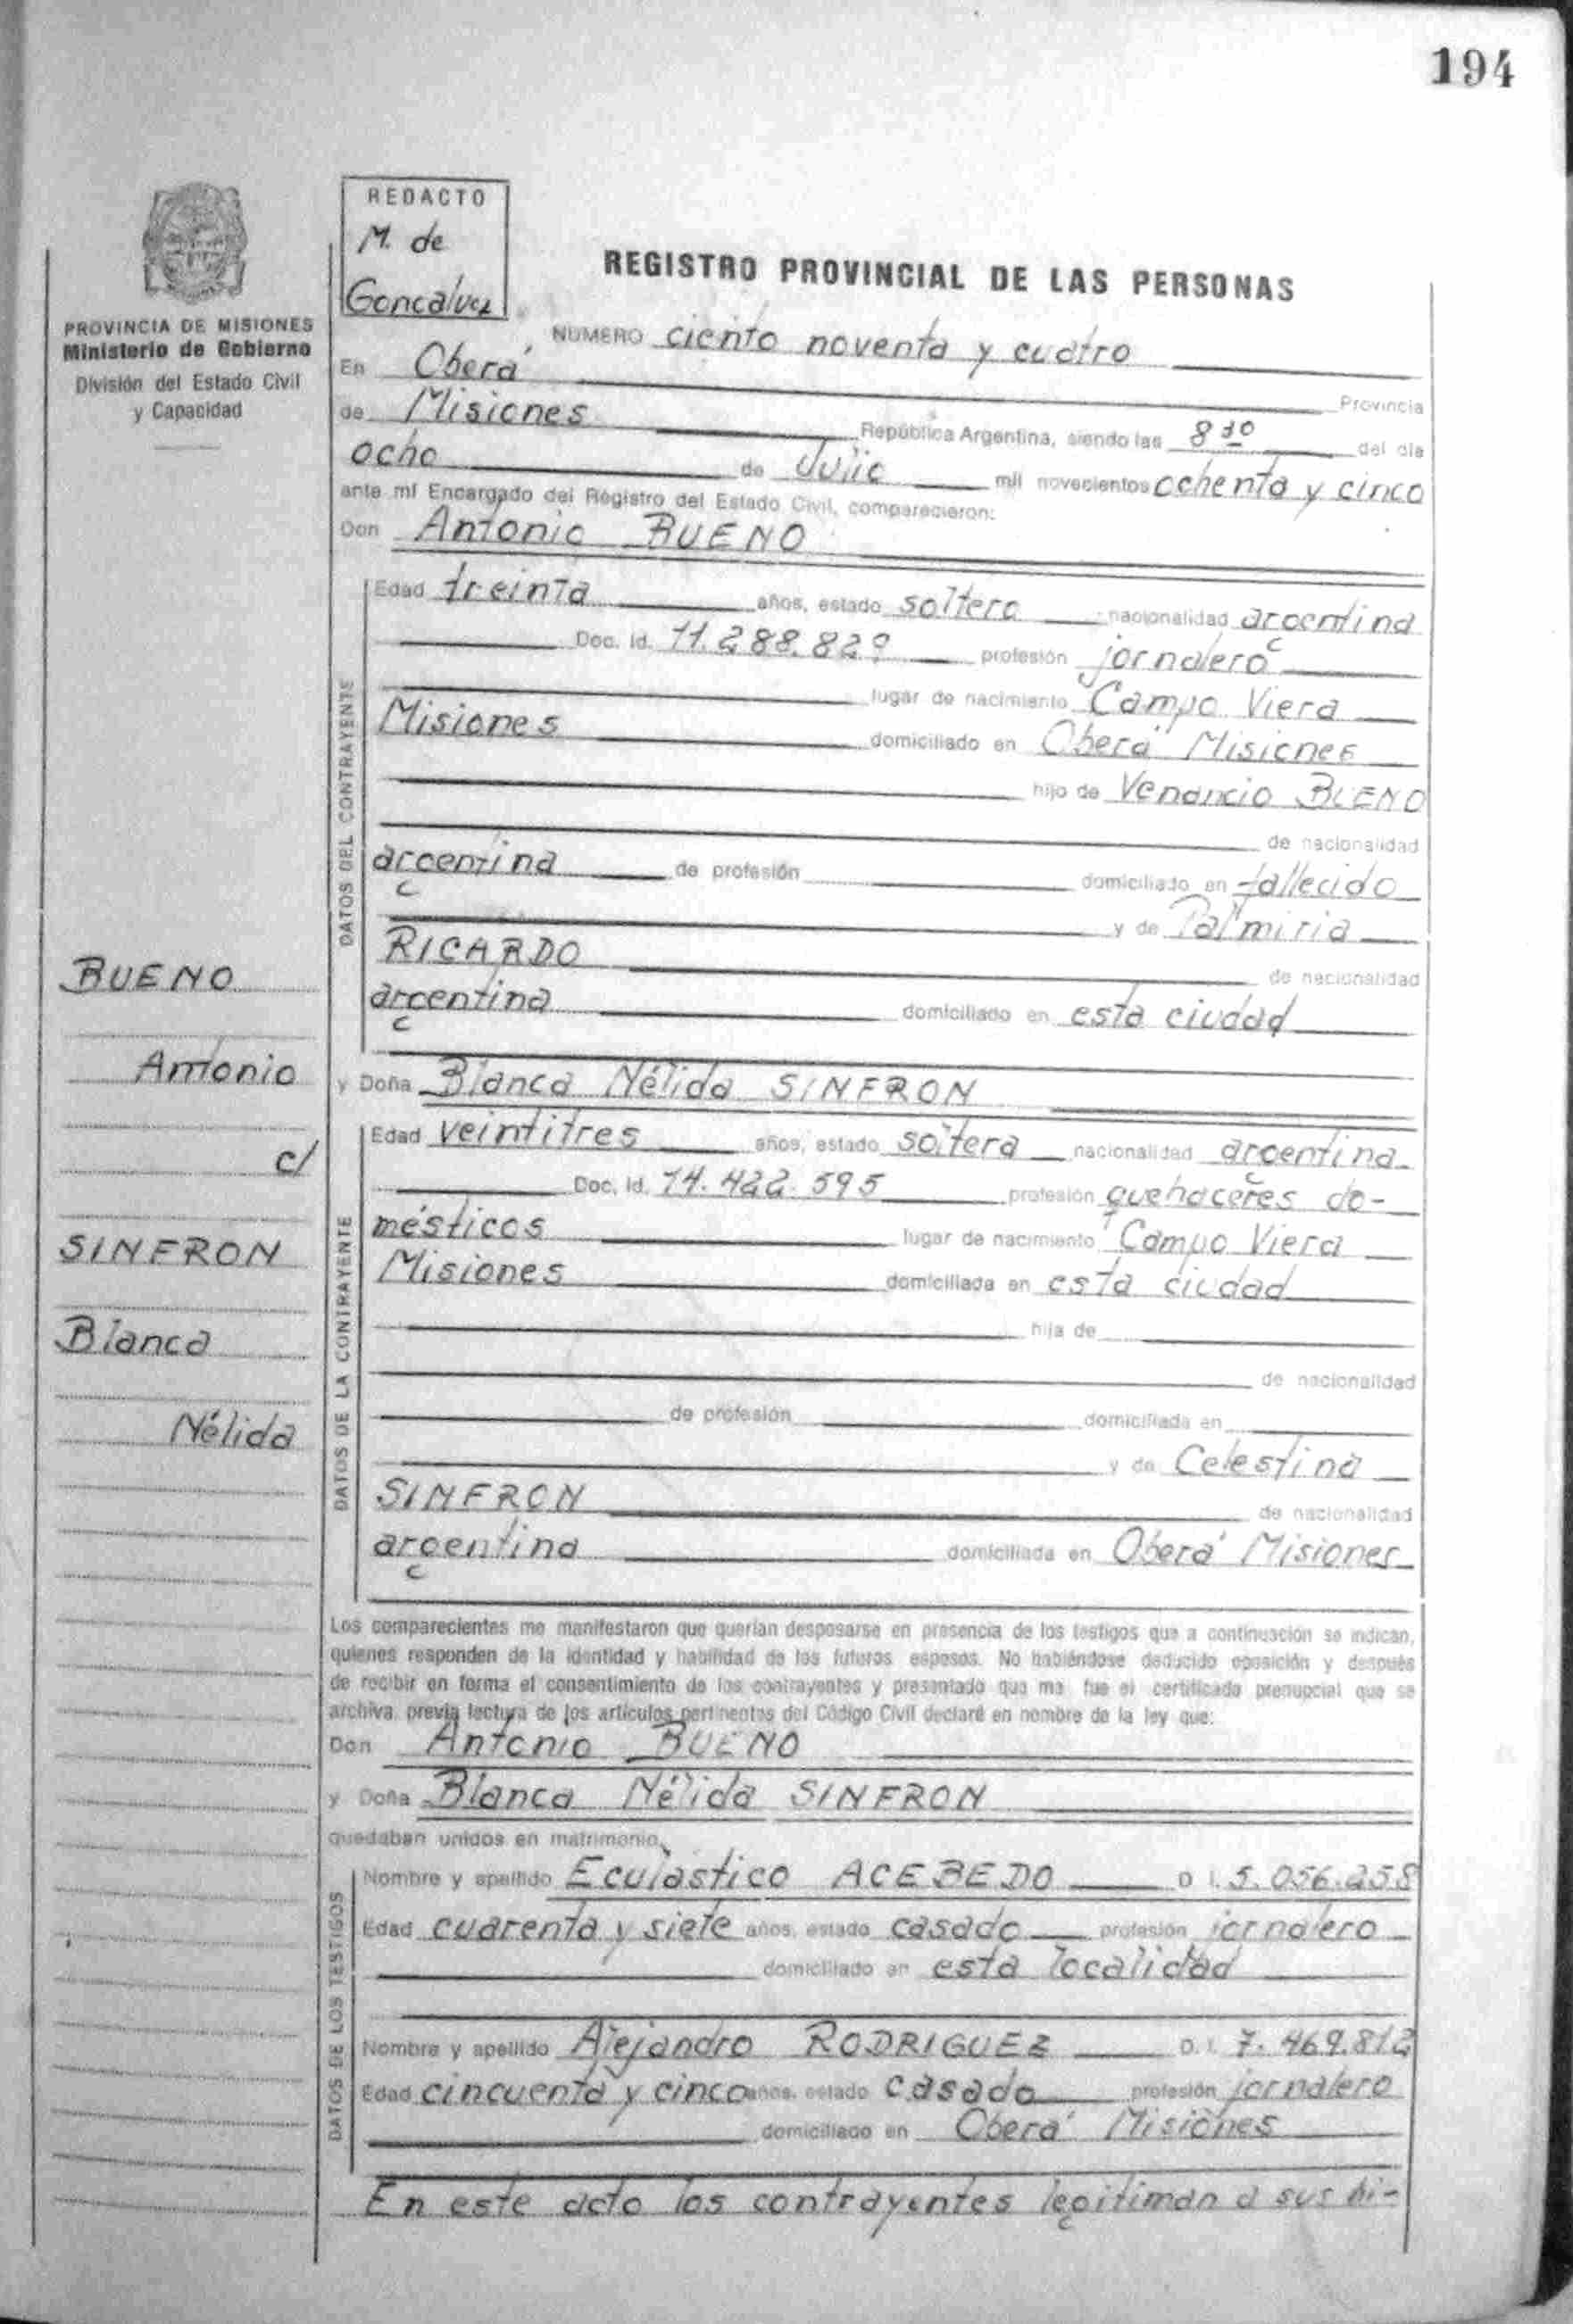 194
REDACTO
M. de
Goncalvez
PROVINCIA DE MISIONES
Ministerio de Gobierno
División del Estado Civil
y Capacidad
REGISTRO PROVINCIAL DE LAS PERSONAS
NUMERO ciento noventa y cuatro
En Oberá Provincia
de Misiones República Argentina, siendo las 8 30 del día
ocho de Julio mil novecientos ochenta y cinco
ante mí Encargado del Registro del Estado Civil, comparecieron:
Don Antonio BUENO
DATOS DEL CONTRAYENTE
Edad treinta años, estado soltero nacionalidad argentina
Doc. Id. 11.288.829 profesión jornalero
lugar de nacimiento Campo Viera
Misiones domiciliado en Oberá Misiones
hijo de Venancio BUENO
de nacionalidad
argentina de profesión domiciliado en fallecido
y de Palmiria
RICARDO de nacionalidad
argentina domiciliado en esta ciudad
BUENO
Antonio
c/
SINFRON
Blanca
Nélida
y Doña Blanca Nélida SINFRON
DATOS DE LA CONTRAYENTE
Edad veintitres años, estado soltera nacionalidad argentina
Doc. Id. 14.422.595 profesión quehaceres do-
mésticos lugar de nacimiento Campo Viera
Misiones domiciliada en esta ciudad
hija de
de nacionalidad
de profesión domiciliada en
y de Celestina
SINFRON de nacionalidad
argentina domiciliada en Oberá Misiones
Los comparecientes me manifestaron que querían desposarse en presencia de los testigos que a continuación se indican,
quienes responden de la identidad y habilidad de los futuros esposos. No habiéndose deducido oposición y después
de recibir en forma el consentimiento de los contrayentes y presentado que me fue el certificado prenupcial que se
archiva, previa lectura de los artículos pertinentes del Código Civil declaré en nombre de la ley que:
Don Antonio BUENO
y Doña Blanca Nélida SINFRON
quedaban unidos en matrimonio,
DATOS DE LOS TESTIGOS
Nombre y apellido Eculastico ACEBEDO D I. 5.056.258
Edad cuarenta y siete años, estado casado profesión jornalero
domiciliado en esta localidad
Nombre y apellido Alejandro RODRIGUEZ D. I. 7.469.812
Edad cincuenta y cinco años, estado casado profesión jornalero
domiciliado en Oberá Misiones
En este acto los contrayentes legitiman a sus hi-